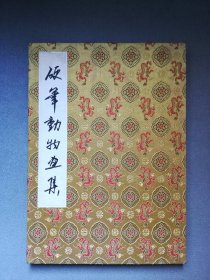 硬筆動物画集